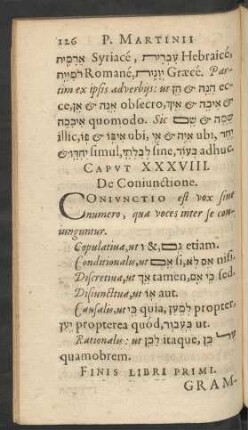 126 P. MARTINII
אֲרָמִית Syriacè, עִבְרִית Hebraicè,
רוֹמִיִּת Romanè, יְוָנִית Græcè. Par-
tim ex ipsis adverbijs: ut הֵן & הִנֵּה ec-
ce, אָן & אָנָּה obsecro, אֵיךְ & אֵיכָה &
אֵיכָכָה quomodo. Sic שָׁם & שָׁמָּה
illic, פֹּו & אֵיפֹו ubi, אֵי & אַיֵּה ubi, יַחַד
& יַחְדָּו simul, לְבִלְתִּי sine, בְּעוֹד adhuc.
CAPVT XXXVIII.
De Coniunctione.
CONIVNCTIO est vox sine
numero, qua voces inter se con-
iunguntur.
Copulativa, ut ו &, גַּם etiam.
Conditionalis, ut אִם si, לֹא nisi.
Discretiva, ut אַךְ tamen, כִּי אִם sed.
Disiunctiva, ut אוֹ aut.
Causalis, ut כִּי quia, לְמַעַן propter,
יַעַן propterea quòd, בַּעֲבוּר ut.
Rationalis: ut לָכֵן itaque, עַל כֵּן
quamobrem.
FINIS LIBRI PRIMI.
GRAM-